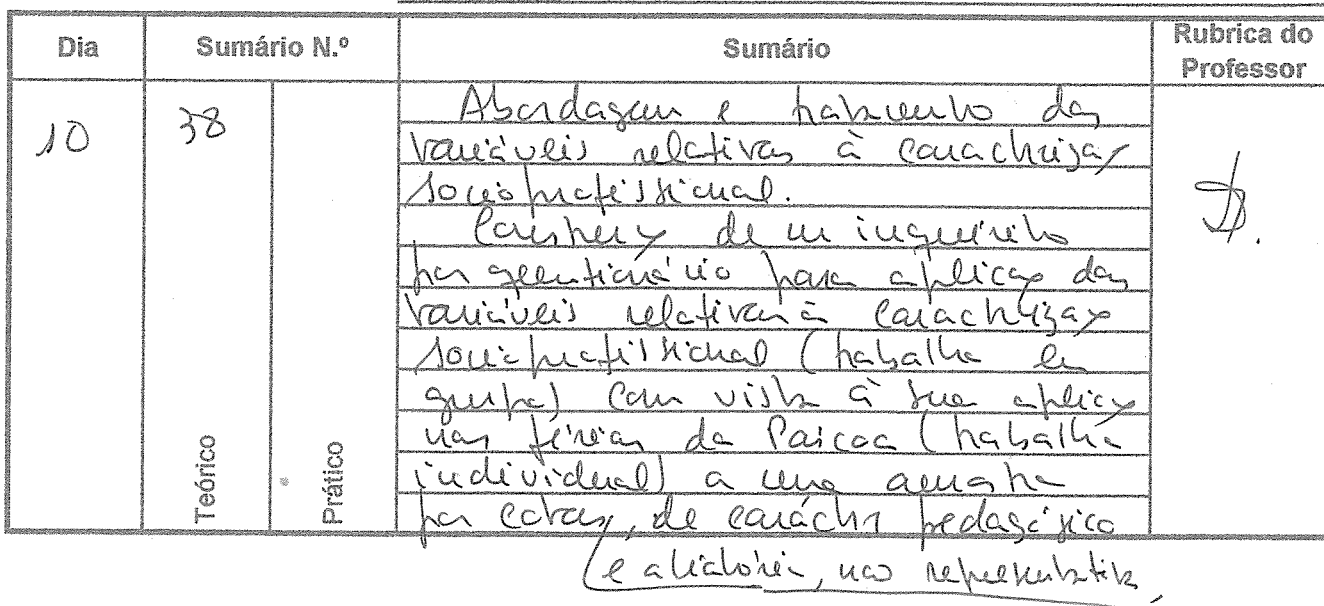 Dia Sumário N.º Sumário Rubrica do Professor
10 38
Teórico Prático
Abordagem e tratamento das
variáveis relativas à caracterização
socioprofissional.
Construção de um inquérito
por questionário para aplicação das
variáveis relativas à caracterização
socioprofissional (trabalho em
grupo) com vista à sua aplicação
nas férias da Páscoa (trabalho
individual) a uma amostra
por cotas, de carácter pedagógico
e aleatória, não representativa,